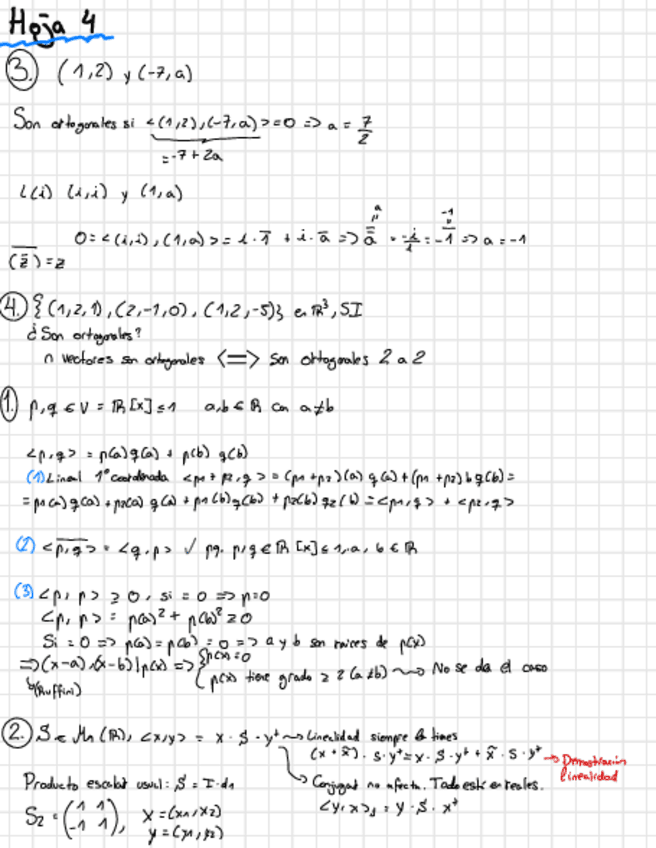 Hoja 4
3. (1,2) y (-7,a)
Son ortogonales si <(1,2),(-7,a)>=0 => a = 7/2
=-7+2a
(i,i) y (1,a)
a -1
0=<(i,i),(1,a)>= i·1̅ + i·a̅ => a̅ = -i/i = -1 => a=-1
(z̅)̅ = z
4. {(1,2,1),(2,-1,0),(1,2,-5)} en ℝ³, SI
¿Son ortogonales?
n vectores son ortogonales <=> son ortogonales 2 a 2
1. p,q ∈ V = ℝ[x]≤1 a,b ∈ ℝ con a≠b
<p,q> = p(a)q(a) + p(b) q(b)
(1) Lineal 1º coordinada <p1 + p2, q> = (p1+p2)(a) q(a)+(p1+p2) b q(b)=
= p1(a) q(a)+p2(a) q(a) + p1(b)q(b) + p2(b) q2(b) = <p1,q> + <p2,q>
(2) <p,q>̅ = <q,p> ✓ pq. p,q ∈ ℝ[x]≤1, a, b ∈ ℝ
(3) <p,p> ≥ 0, si = 0 => p=0
<p,p> = p(a)² + p(b)² ≥ 0
Si = 0 => p(a) = p(b) = 0 => a y b son raices de p(x)
=> (x-a)(x-b)|p(x) => { p(x)=0
p(x) tiene grado ≥ 2 (a≠b) ⟿ No se da el caso
(Ruffini)
2. S ∈ Mn(ℝ), <x,y> = x · S · yᵗ ⟿ Linealidad siempre la tienes
(x + x̃) · S · yᵗ = x · S · yᵗ + x̃ · S · yᵗ → Demostración
linealidad
Producto escalar usual: S = Id
Conjugar no afecta. Todo está en reales.
<y,x>s = y · S · xᵗ
S2 = (1 1
-1 1), x = (x1,x2)
y = (y1,y2)